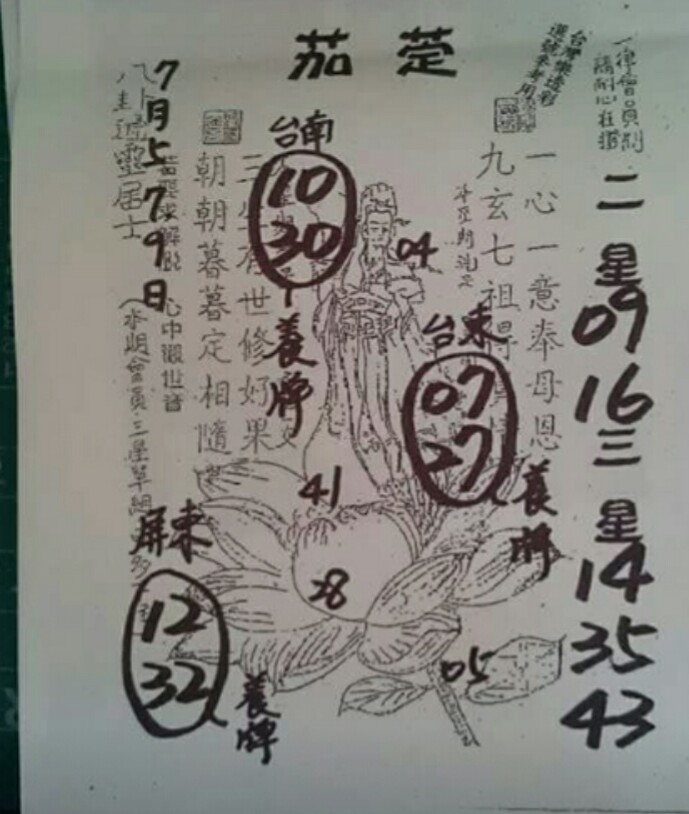 茄萣
台灣樂透彩
選號參考用
一律會員制
請耐心在猜
二星
09
16
三星
14
35
43
一心一意奉母恩
九玄七祖得
台東
07
27
養牌
04
台南
10
30
養牌
41
28
05
世修好果
朝朝暮暮定相隨
心中
世音
7月5 7 9日
靈居士
本期會員三星單組
屏東
12
32
養牌